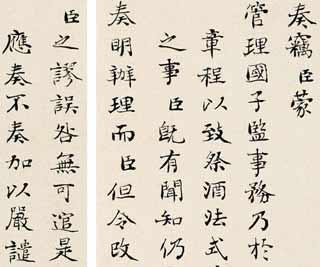 奏竊臣蒙
管理國子監事務乃於
章程以致祭酒法式
之事臣既有聞知仍
奏明辦理而臣但令改
臣之謬誤咎無可逭是
應奏不奏加以嚴譴